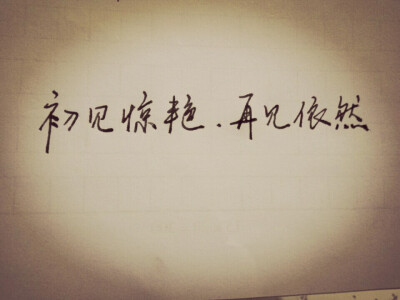 初见惊艳.再见依然